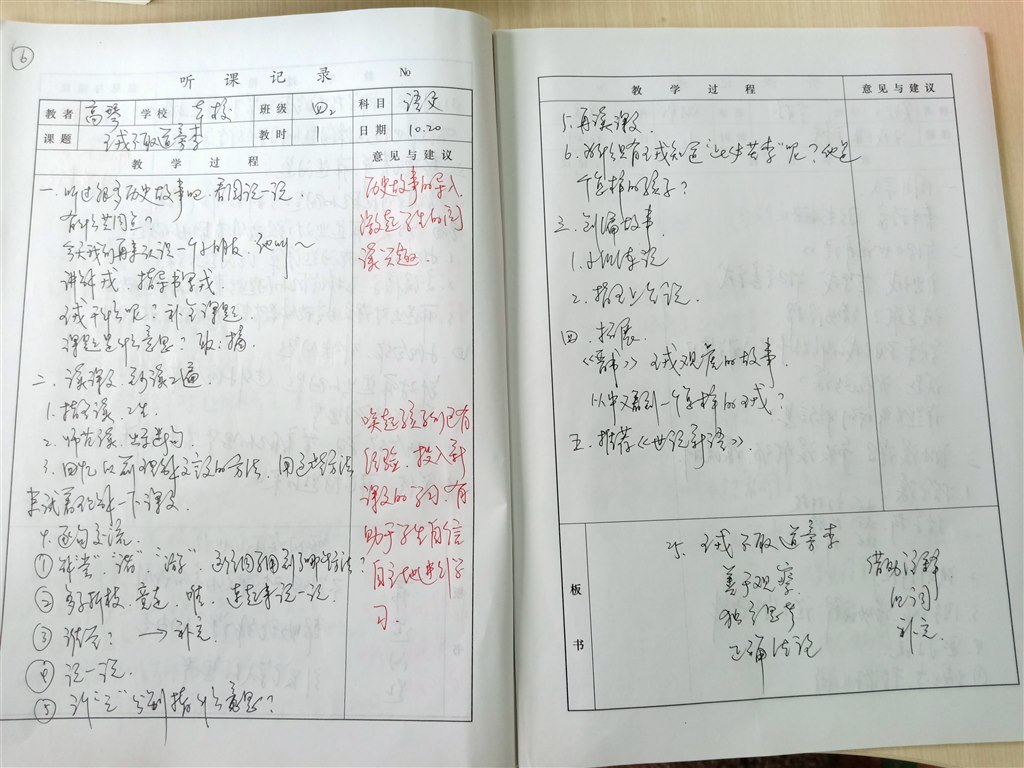 ⑥
听课记录 №
教者 高琴 学校 东校 班级 四2 科目 语文
课题 王戎不取道旁李 教时 1 日期 10.20
教学过程 意见与建议
一、听过很多历史故事吧,看图说一说.
有什么共同点?
今天我们再来认识一个小朋友,他叫~
讲讲戎,指导书写戎
王戎干什么呢?补全课题
课题是什么意思? 取:摘.
二、读课文,
1.指名读,2生
2.师范读,
3.回忆以前理解文言文的方法,用这些方法
来试着理解一下课文.
4.逐句交流.
① "尝" "诸" "游"
② 多子折枝,竞走,唯,连起来说一说.
③ 讨论: → 补充
④ 说一说.
⑤ 两个"之"分别指什么意思?
历史故事的导入
激起学生的阅
读兴趣.
唤起孩子们已有
经验,投入新
课文的学习,有
助于学生自信
自主地进行学
习.
教学过程 意见与建议
5.再读课文.
6.为什么只有王戎知道"此必苦李"呢?他是
个怎样的孩子?
三、创编故事.
1.小组练说
2.指名上台说.
四、拓展.
《晋书》王戎观虎的故事.
从中又看到一个怎样的王戎?
五、推荐《世说新语》
板书
25. 王戎不取道旁李
善于观察
独立思考
正确结论
借助注释
组词
补充.